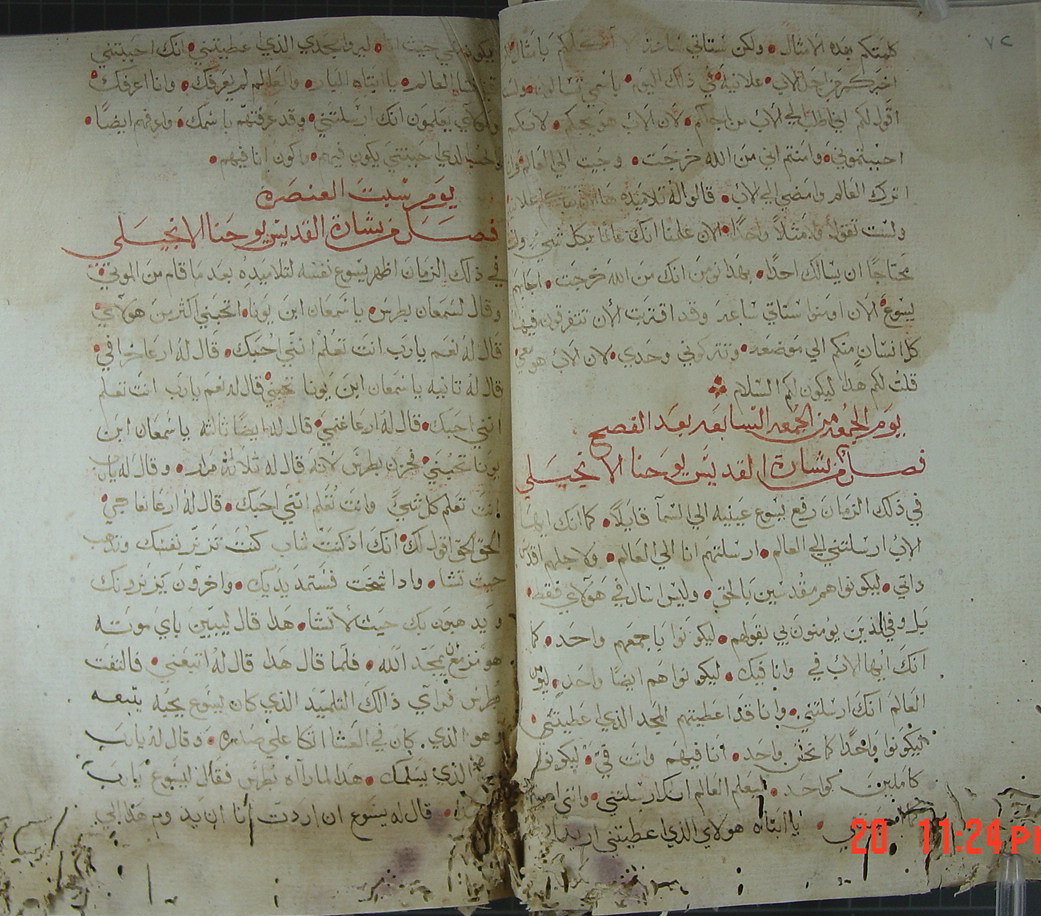 كلمتكم بهذه الامثال • ولكن ستاتي ساعه
اخبركم من اجل الاب • علانية في ذلك اليوم • باسمي تسالون •
اقول لكم اني اطلب الي الاب من اجلكم • لان الاب هو يحبكم • لانكم
احببتموني • وامنتم اني من الله خرجت • وجيت الي العالم
اترك العالم وامضي الي الاب • قالوا له تلاميذه ها
ولست تقول ولا مثلاً واحدًا • الان علمنا انك عالمًا بكل شي
محتاجًا ان يسالك احدًا • بهذا نومن انك من الله خرجت • اجابهم
يسوع الان امنوا ستاتي ساعه وقد اقتربت الان تتفرقون فيها
كل انسان منكم الي موضعه • وتتركوني وحدي • لان الاب هو معي
قلت لكم هذا ليكون لكم السلام
يوم الجمعه من الجمعه السابعه بعد الفصح
فصل من بشارة القديس يوحنا الانجيلي
في ذلك الزمان رفع يسوع عينيه الي السما قايلاً • كما انك ايها
الاب ارسلتني الي العالم • ارسلتهم انا الي العالم • ولاجلهم اقدس
ذاتي • ليكونوا هم مقدسين بالحق • وليس اسال في هولاي فقط •
بل وفي الذين يومنون بي بقولهم • ليكونوا باجمعهم واحد • كما
انك ايها الاب في وانا فيك • ليكونوا هم ايضًا واحد •
العالم انك ارسلتني • وانا قد اعطيتهم المجد الذي اعطيتني •
ليكونوا واحدًا كما نحن واحد • انا فيهم وانت في • ليكونوا
كاملين كواحد • ليعلم العالم انك ارسلتني • وانني
يا ابتاه هولاي الذي اعطيتني اريد
الذي اعطيتني • انك احببتني
العالم • يا ابتاه البار • والعالم لم يعرفك • وانا اعرفك
يعلمون انك ارسلتني • وقد عرفتهم باسمك • واعرفهم ايضًا •
والحب الذي حببتني يكون فيهم • واكون انا فيهم •
يوم سبت العنصره
فصل من بشارة القديس يوحنا الانجيلي
في ذلك الزمان اظهر يسوع نفسه لتلاميذه بعد ما قام من الموتي •
وقال لسمعان بطرس • يا سمعان ابن يونا • اتحبني اكثر من هولاي
قال له نعم يارب انت تعلم انني احبك • قال له ارعا خرافي •
قال له ثانيه يا سمعان ابن يونا تحبني قال له نعم يارب انت تعلم
انني احبك • قال له ارعا غنمي • قال له ايضًا ثالثه يا سمعان ابن
يونا تحبني • فحزن بطرس لانه قال له ثلاثة مرات • وقال له يارب
انت تعلم كل شي • وانت تعلم انني احبك • قال له ارعا نعاجي •
الحق الحق اقول لك • انك اذ كنت شاب كنت تزنر نفسك وتذهب
حيث تشا • واذا شخت فستمد يديك • واخرون يزنرونك
ويذهبون بك حيث لا تشا • هذا قال ليبين باي موته
هو مزمع يمجد الله • فلما قال هذا قال له اتبعني • فالتفت
بطرس فراي ذالك التلميذ الذي كان يسوع يحبه يتبعه
هو الذي كان في العشا اتكا علي صدره • وقال له يارب
الذي يسلمك • هذا لما راه بطرس فقال ليسوع يارب
قال له يسوع ان اردت انا ان
20 11:24 PM